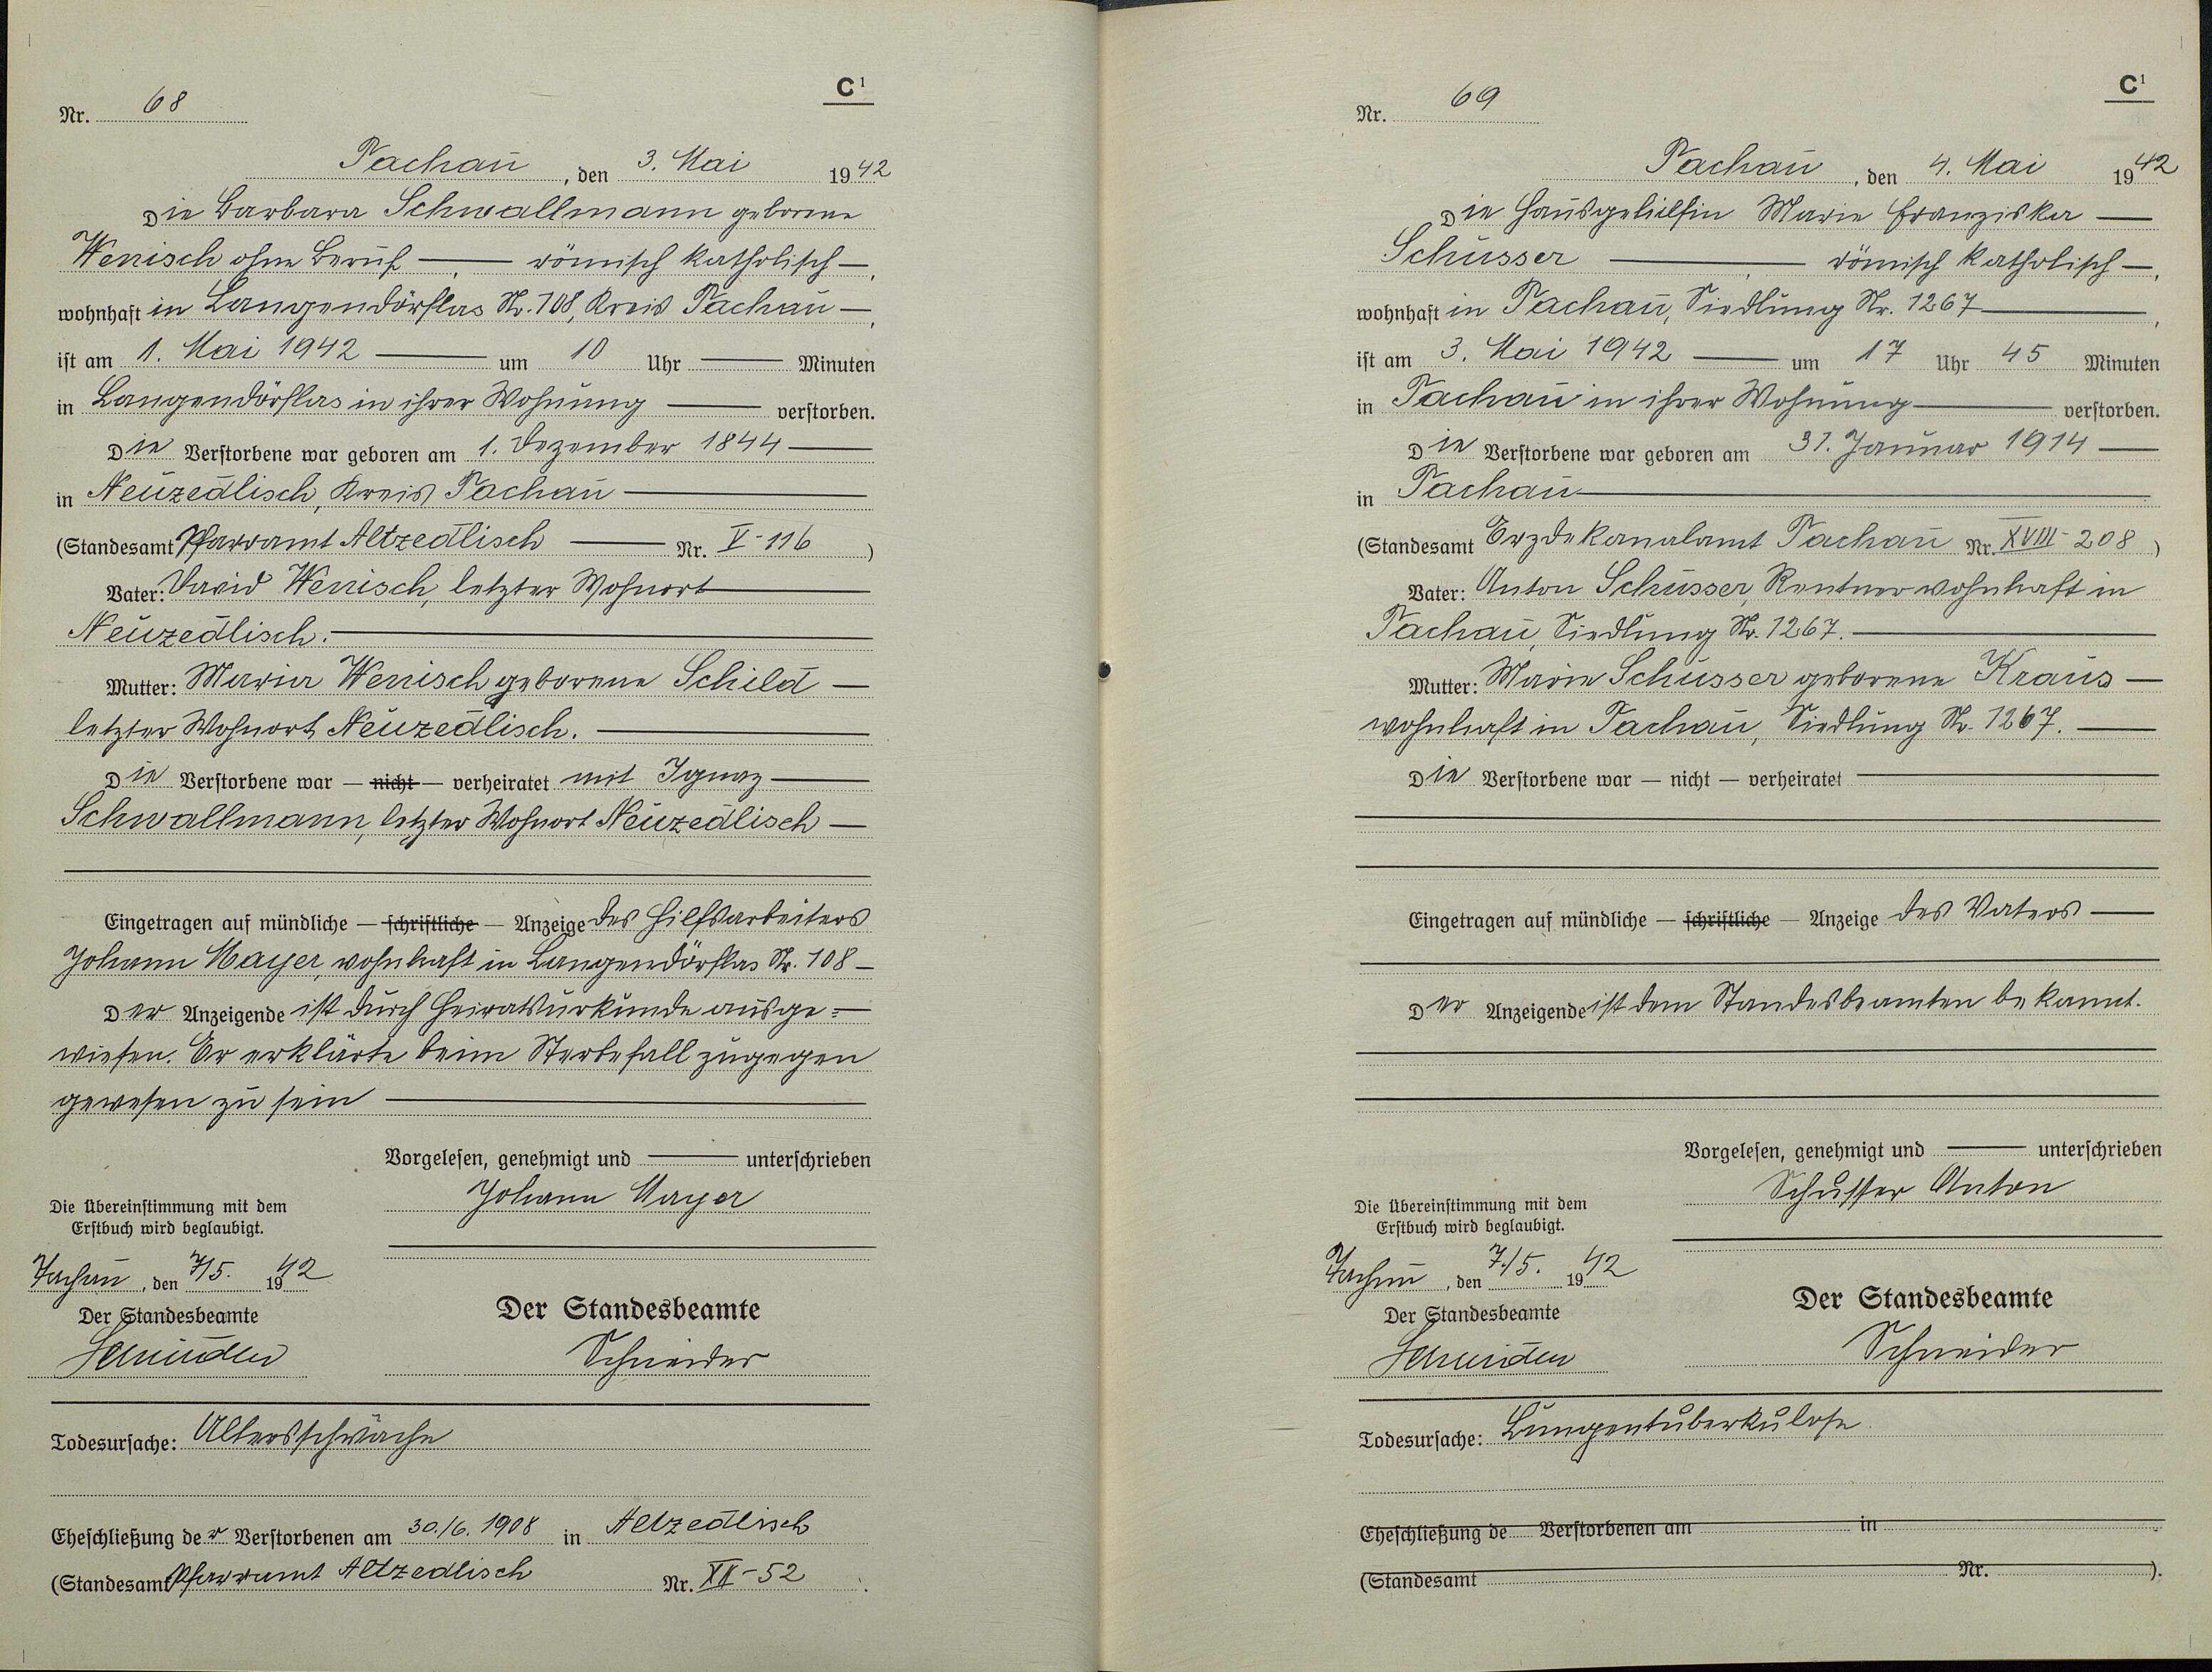 C¹
Nr. 68
Tachau, den 3. Mai 1942
Die Barbara Schwallmann geborene
Wenisch ohne Beruf — römisch katholisch —,
wohnhaft in Langendörflas Nr. 108, Kreis Tachau —,
ist am 1. Mai 1942 — um 10 Uhr — Minuten
in Langendörflas in ihrer Wohnung — verstorben.
Die Verstorbene war geboren am 1. Dezember 1844 —
in Neuzedlisch, Kreis Tachau —
(Standesamt Pfarramt Altzedlisch — Nr. V-116)
Vater: David Wenisch, letzter Wohnort —
Neuzedlisch. —
Mutter: Maria Wenisch geborene Schild —
letzter Wohnort Neuzedlisch. —
Die Verstorbene war — nicht — verheiratet mit Ignaz —
Schwallmann, letzter Wohnort Neuzedlisch —
Eingetragen auf mündliche — schriftliche — Anzeige des Hilfsarbeiters
Johann Mayer, wohnhaft in Langendörflas Nr. 108 —
Der Anzeigende ist durch Heiratsurkunde ausge=
wiesen. Er erklärte beim Sterbefall zugegen
gewesen zu sein —
Vorgelesen, genehmigt und — unterschrieben
Johann Mayer
Die Übereinstimmung mit dem
Erstbuch wird beglaubigt.
Tachau, den 7/5. 1942
Der Standesbeamte
Der Standesbeamte
Schneider
Todesursache: Altersschwäche
Eheschließung der Verstorbenen am 30./6. 1908 in Altzedlisch
(Standesamt Pfarramt Altzedlisch Nr. XII-52.
C¹
Nr. 69
Tachau, den 4. Mai 1942
Die Hausgehilfin Marie Franziska —
Schusser — römisch katholisch —,
wohnhaft in Tachau, Siedlung Nr. 1267 —,
ist am 3. Mai 1942 — um 17 Uhr 45 Minuten
in Tachau in ihrer Wohnung — verstorben.
Die Verstorbene war geboren am 31. Januar 1914 —
in Tachau —
(Standesamt Erzdekanalamt Tachau Nr. XVIII-208)
Vater: Anton Schusser, Rentner wohnhaft in
Tachau, Siedlung Nr. 1267. —
Mutter: Marie Schusser geborene Kraus —
wohnhaft in Tachau, Siedlung Nr. 1267. —
Die Verstorbene war — nicht — verheiratet —
Eingetragen auf mündliche — schriftliche — Anzeige des Vaters —
Der Anzeigende ist dem Standesbeamten bekannt.
Vorgelesen, genehmigt und — unterschrieben
Schusser Anton
Die Übereinstimmung mit dem
Erstbuch wird beglaubigt.
Tachau, den 7./5. 1942
Der Standesbeamte
Der Standesbeamte
Schneider
Todesursache: Lungentuberkulose
Eheschließung de Verstorbenen am in
(Standesamt Nr. ).